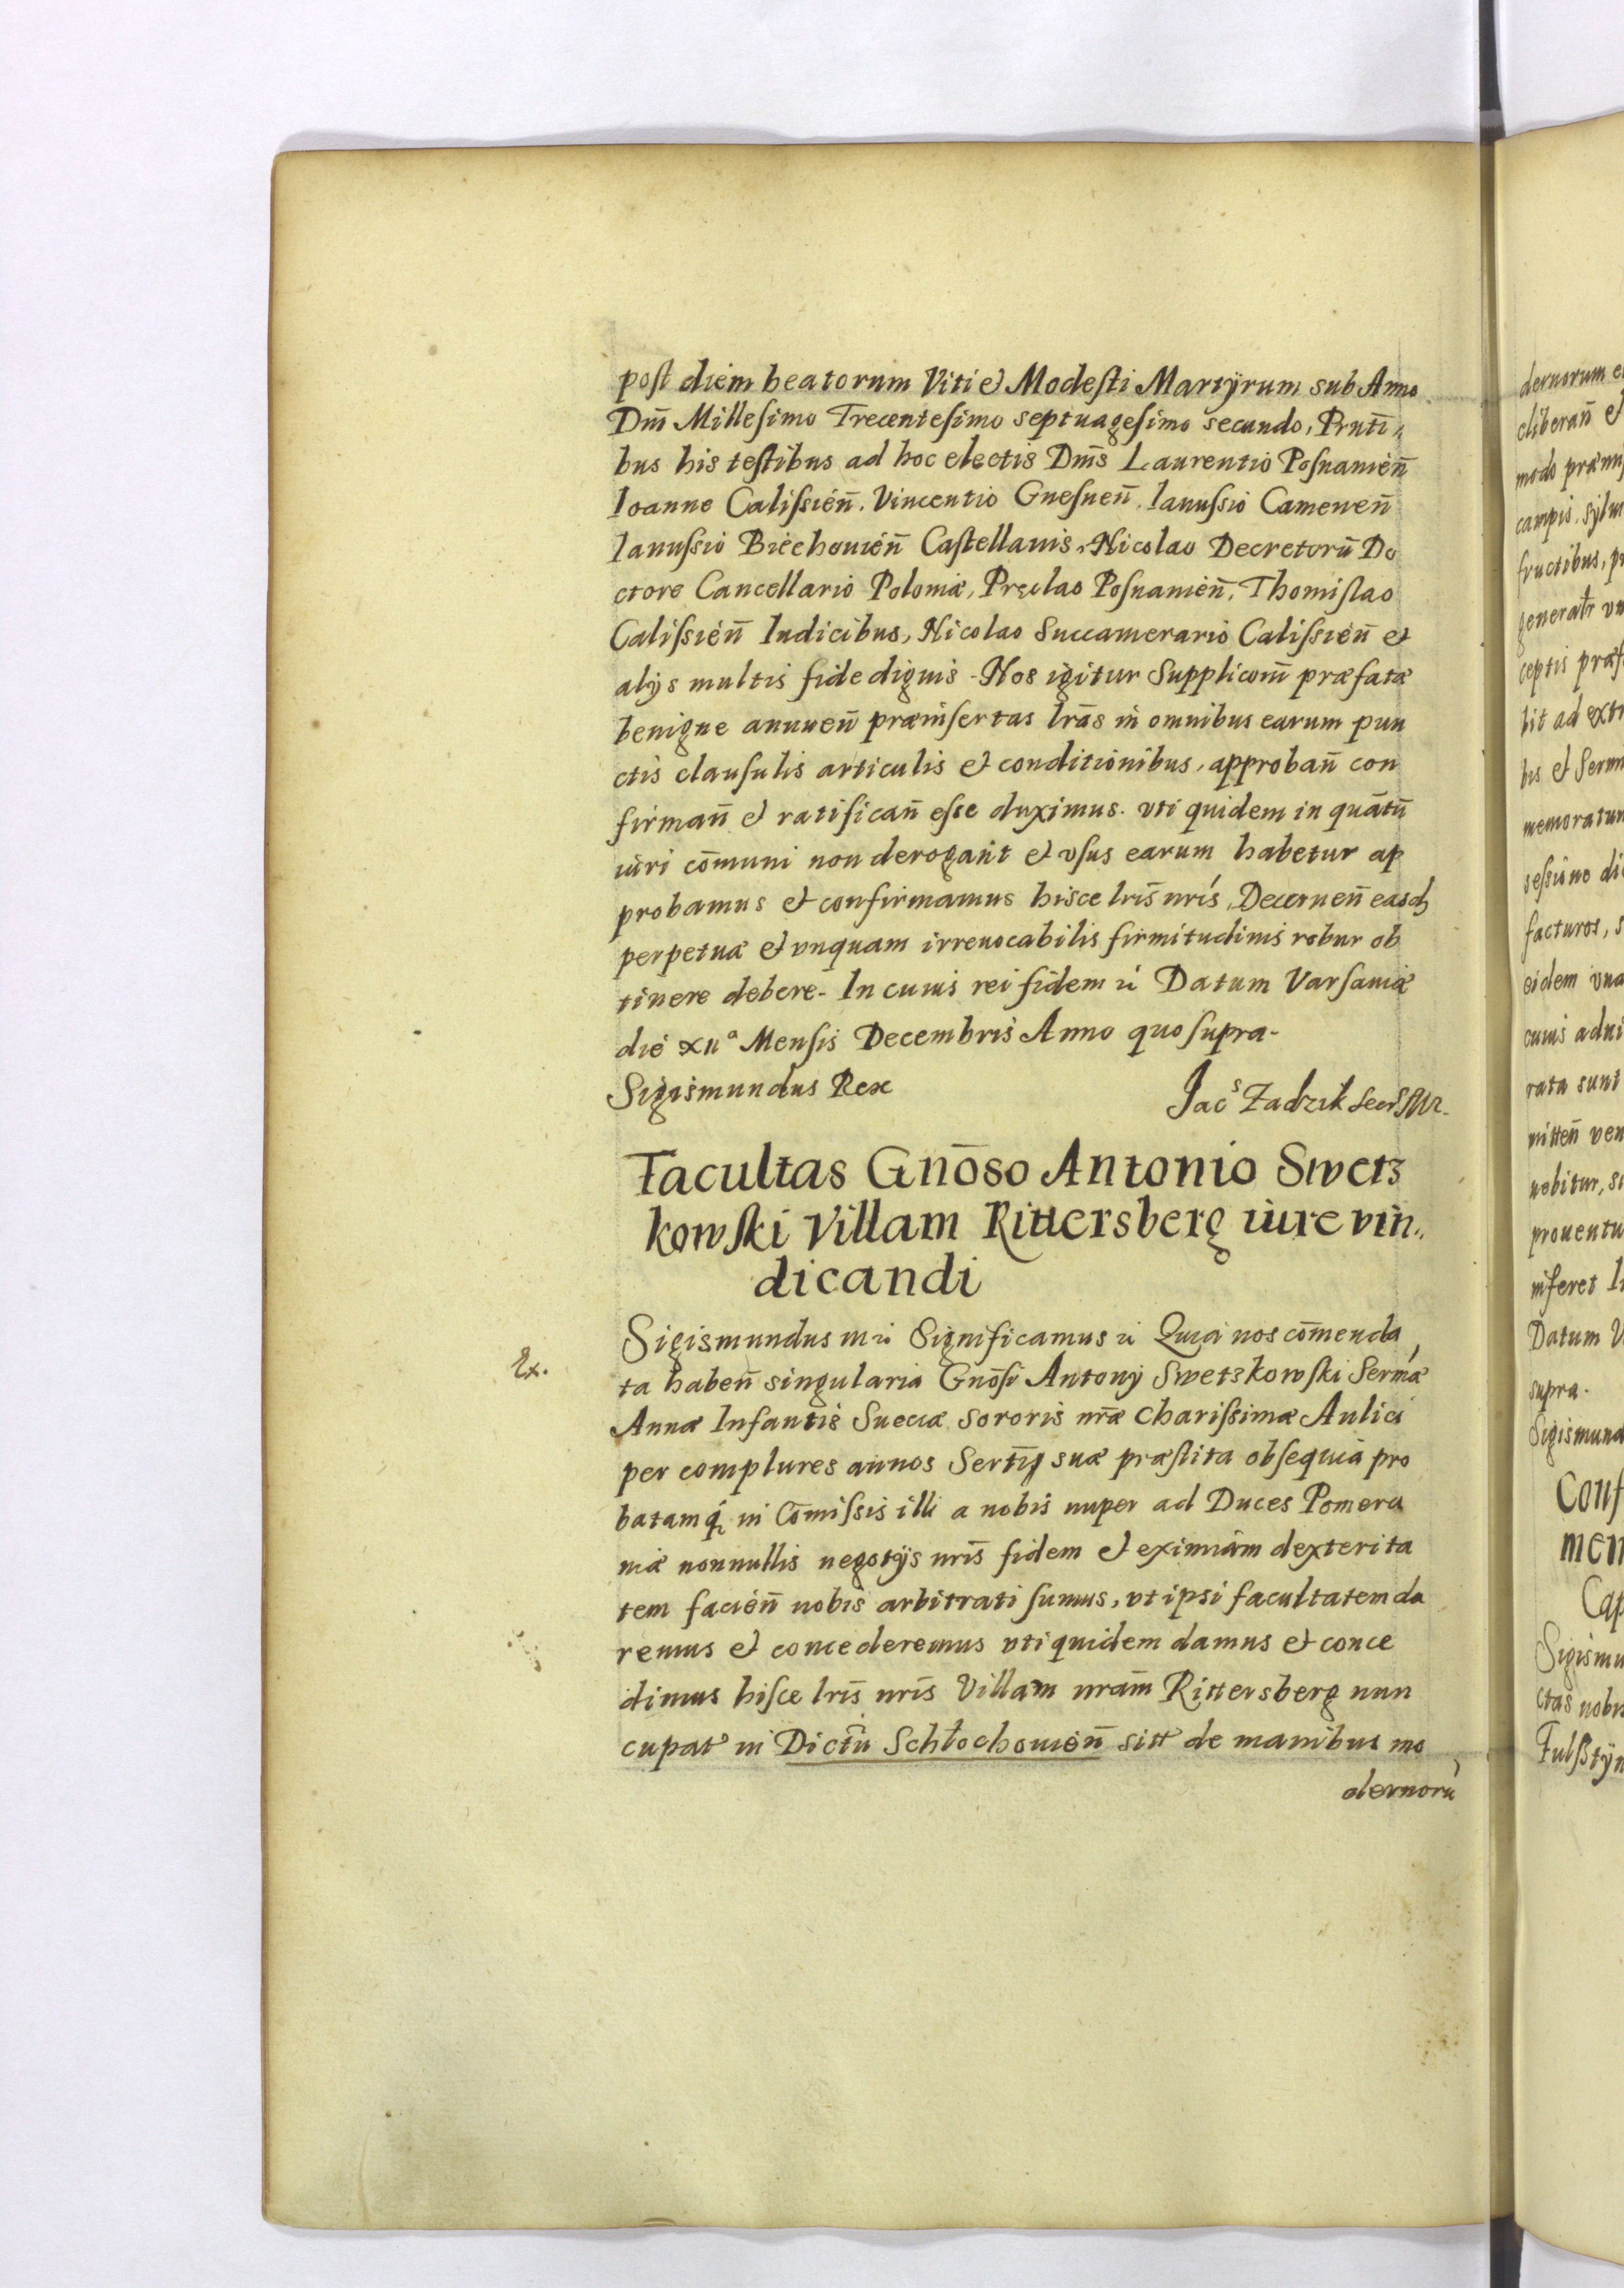 post diem beatorum Viti et Modesti Martÿrum sub Anno
Dm̄ Millesimo Trecentesimo septuagesimo secundo, Prntī,,
bus his testibus ad hoc electis Dm̄s Laurentio Posnanien̄
Ioanne Calissien̄. Vincentio Gnesnen̄. Ianussio Camenen̄
Ianussio Biechouien̄ Castellanis, Nicolao Decretorū Do
ctore Cancellario Poloniæ, Pręclao Posnanien̄, Thomislao
Calissien̄ Iudicibus, Nicolao Succamerario Calissien̄ et
alijs multis fide dignis. Nos igitur Suppliconi̅ præfatæ
benigne annuen̄ præinsertas lrās in omnibus earum pun
ctis clausulis articulis et conditionibus, approban̄ con
firman̄ et ratifican̄ esse duximus. vti quidem in quātū
iuri cōmuni non derogant et vsus earum habetur ap
probamus et confirmamus hisce lrīs nrīs, Decernen̄ easd
perpetuæ et vnquam irreuocabilis firmitudinis robur ob
tinere debere. In cuius rei fidem &c Datum Varsauiæ
die xiiª Mensis Decembris Anno quo supra.
Sigismundus Rex
Jacˢ Zadzik Secr
Facultas Gnōso Antonio Swetz
kowski Villam Rittersberg iure vin,,
dicandi
Ex.
Sigismundus III &c Significamus &c Quia nos cōmenda
ta haben̄ singularia Gnōsi Antonij Swetzkowski Sermæ
Annæ Infantis Sueciæ sororis nrǣ Charissimæ Aulici
per complures annos Sertīq suæ præstita obsequia pro
batamq́ in Cōmissis illi a nobis nuper ad Duces Pomera
niæ nonnullis negotijs nrīs fidem et eximiam dexterita
tem facien̄ nobis arbitrati sumus, vt ipsi facultatem da
remus et concederemus vti quidem damus et conce
dimus hisce lrīs nrīs Villam nram̄ Rittersberg nun
cupat in Dictū Schłochouien̄ sitt de manibus mo
dernorū
dernorum
cliberan̄ et
modo
campis, sylu
fructibus, p
generatr̄
ceptis præf
bit ad extr
bis et
memoratum
sessione di
facturos, s
eidem vna
cuius
rata sunt
mitten̄
nebitur,
prouentu
inferet
Datum V
supra.
Sigismund
Conf
men
Cap
Sigismu
ctas nobis
Fulsstÿn